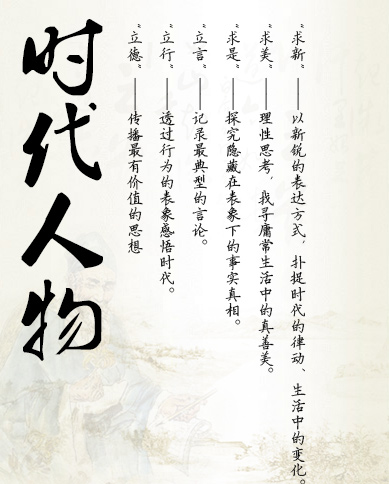 时代人物
“立德”——传播最有价值的思想
“立行”——透过行为的表象感悟时代。
“立言”——记录最典型的言论。
“求是”——探究隐藏在表象下的事实真相。
“求美”——理性思考，找寻庸常生活中的真善美。
“求新”——以新锐的表达方式，扑捉时代的律动、生活中的变化。